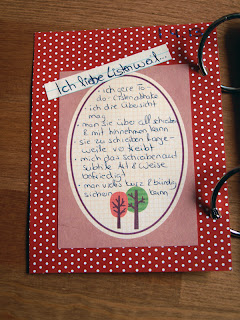 Ich liebe Listen weil...
• ich gere To-
do-Listen abhake
• ich die Übersicht
mag
• man sie überall schreiben
& mit hinnehmen kann
• sie zu schreiben Lange-
weile vertreibt
• mich das schreiben auf
subtile Art & Weise
befriedigt
• man vieles kurz & bündig
sichern kann